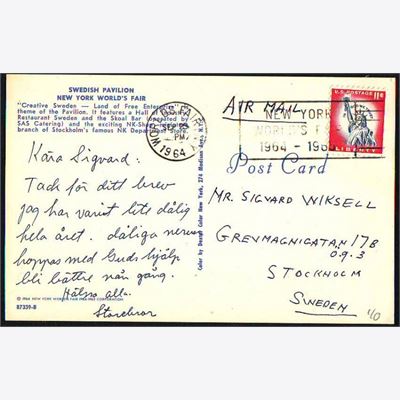 SWEDISH PAVILION
NEW YORK WORLD'S FAIR
"Creative Sweden — Land of Free Enterprise"
theme of the Pavilion. It features a Hall of
Restaurant Sweden and the Skoal Bar (operated by
SAS Catering) and the exciting NK-Shop,
branch of Stockholm's famous NK Department Store.
WORLD'S FAIR
PM
1964
AIR MAIL
NEW YORK
WORLD'S FAIR
1964 - 196
U.S. POSTAGE 11¢
LIBERTY
Post Card
Kära Sigvard:
Tack för ditt brev
jag har varit lite dålig
hela året. dåliga nerver
hoppas med Guds hjälp
bli bättre nån gång.
Hälsa alla.
Storebror
MR. SIGVARD WIKSELL
GREVMAGNIGATAN 17B
ö.g. 3
STOCKHOLM
SWEDEN
Color by Dexter Color New York, 274 Madison Ave., N.Y.
© 1964 NEW YORK WORLD'S FAIR 1964-1965 CORPORATION
87339-B